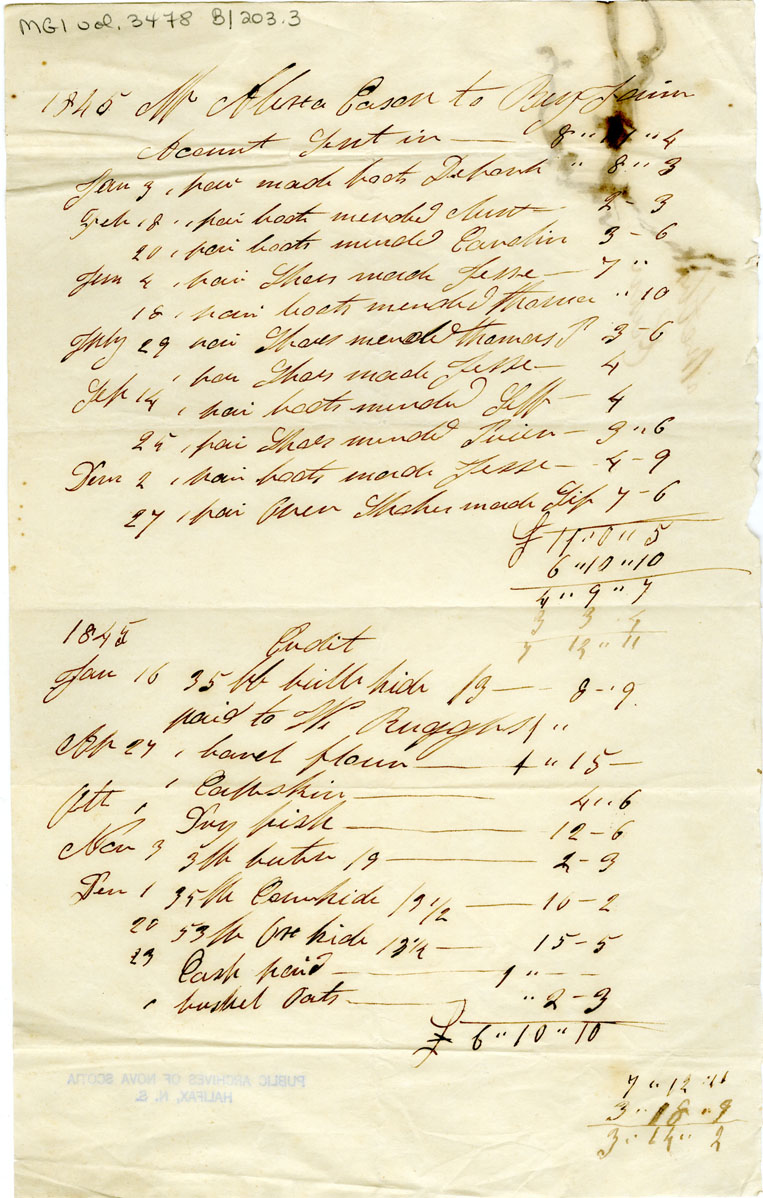 MG1 vol. 3478 B/203.3
1845 Mr Alixa Eason to Benj
Acount Sent in — 8 " 17 " 4
Jan 3 1 pair made boots Deborh " 8 " 3
Feb 18 1 pair boots mended Aunt — 2 - 3
20 1 pair boots mended Carolin 3 - 6
Jun 4 1 pair Shoes made Jesse — 7 "
18 1 pair boots mended thomas " 10
July 29 pair Shoes mended thomas P 3 - 6
1 pair Shoes made Jesse — 4
Sep 14 1 pair boots mended — 4
25 1 pair Shoes mended — 3 " 6
Dem 2 1 pair boots made Jesse — 4 - 9
27 1 pair Over Shoes made 7 - 6
£ 11 " 0 " 5
6 " 10 " 10
4 " 9 " 7
3 3 4
7 12 " 11
1845 Credit
Jan 16 35 lb bull hide /3 — 8 - 9
paid to Wm Ruggles 1 "
Ap 27 1 barel flour — 1 " 15 —
Oct 1 Calfskin — 4 " 6
Dry fish — 12 - 6
Nov 3 3 lb buter /9 — 2 - 3
Dem 1 35 lb Cowhide /3 1/2 — 10 - 2
20 53 lb Ox hide /3 1/2 — 15 - 5
23 Cash paid — 1 " — —
1 bushel Oats — " 2 - 3
£ 6 " 10 " 10
PUBLIC ARCHIVES OF NOVA SCOTIA
HALIFAX, N. S.
7 " 12 " 11
3 " 18 " 9
3 " 14 " 2